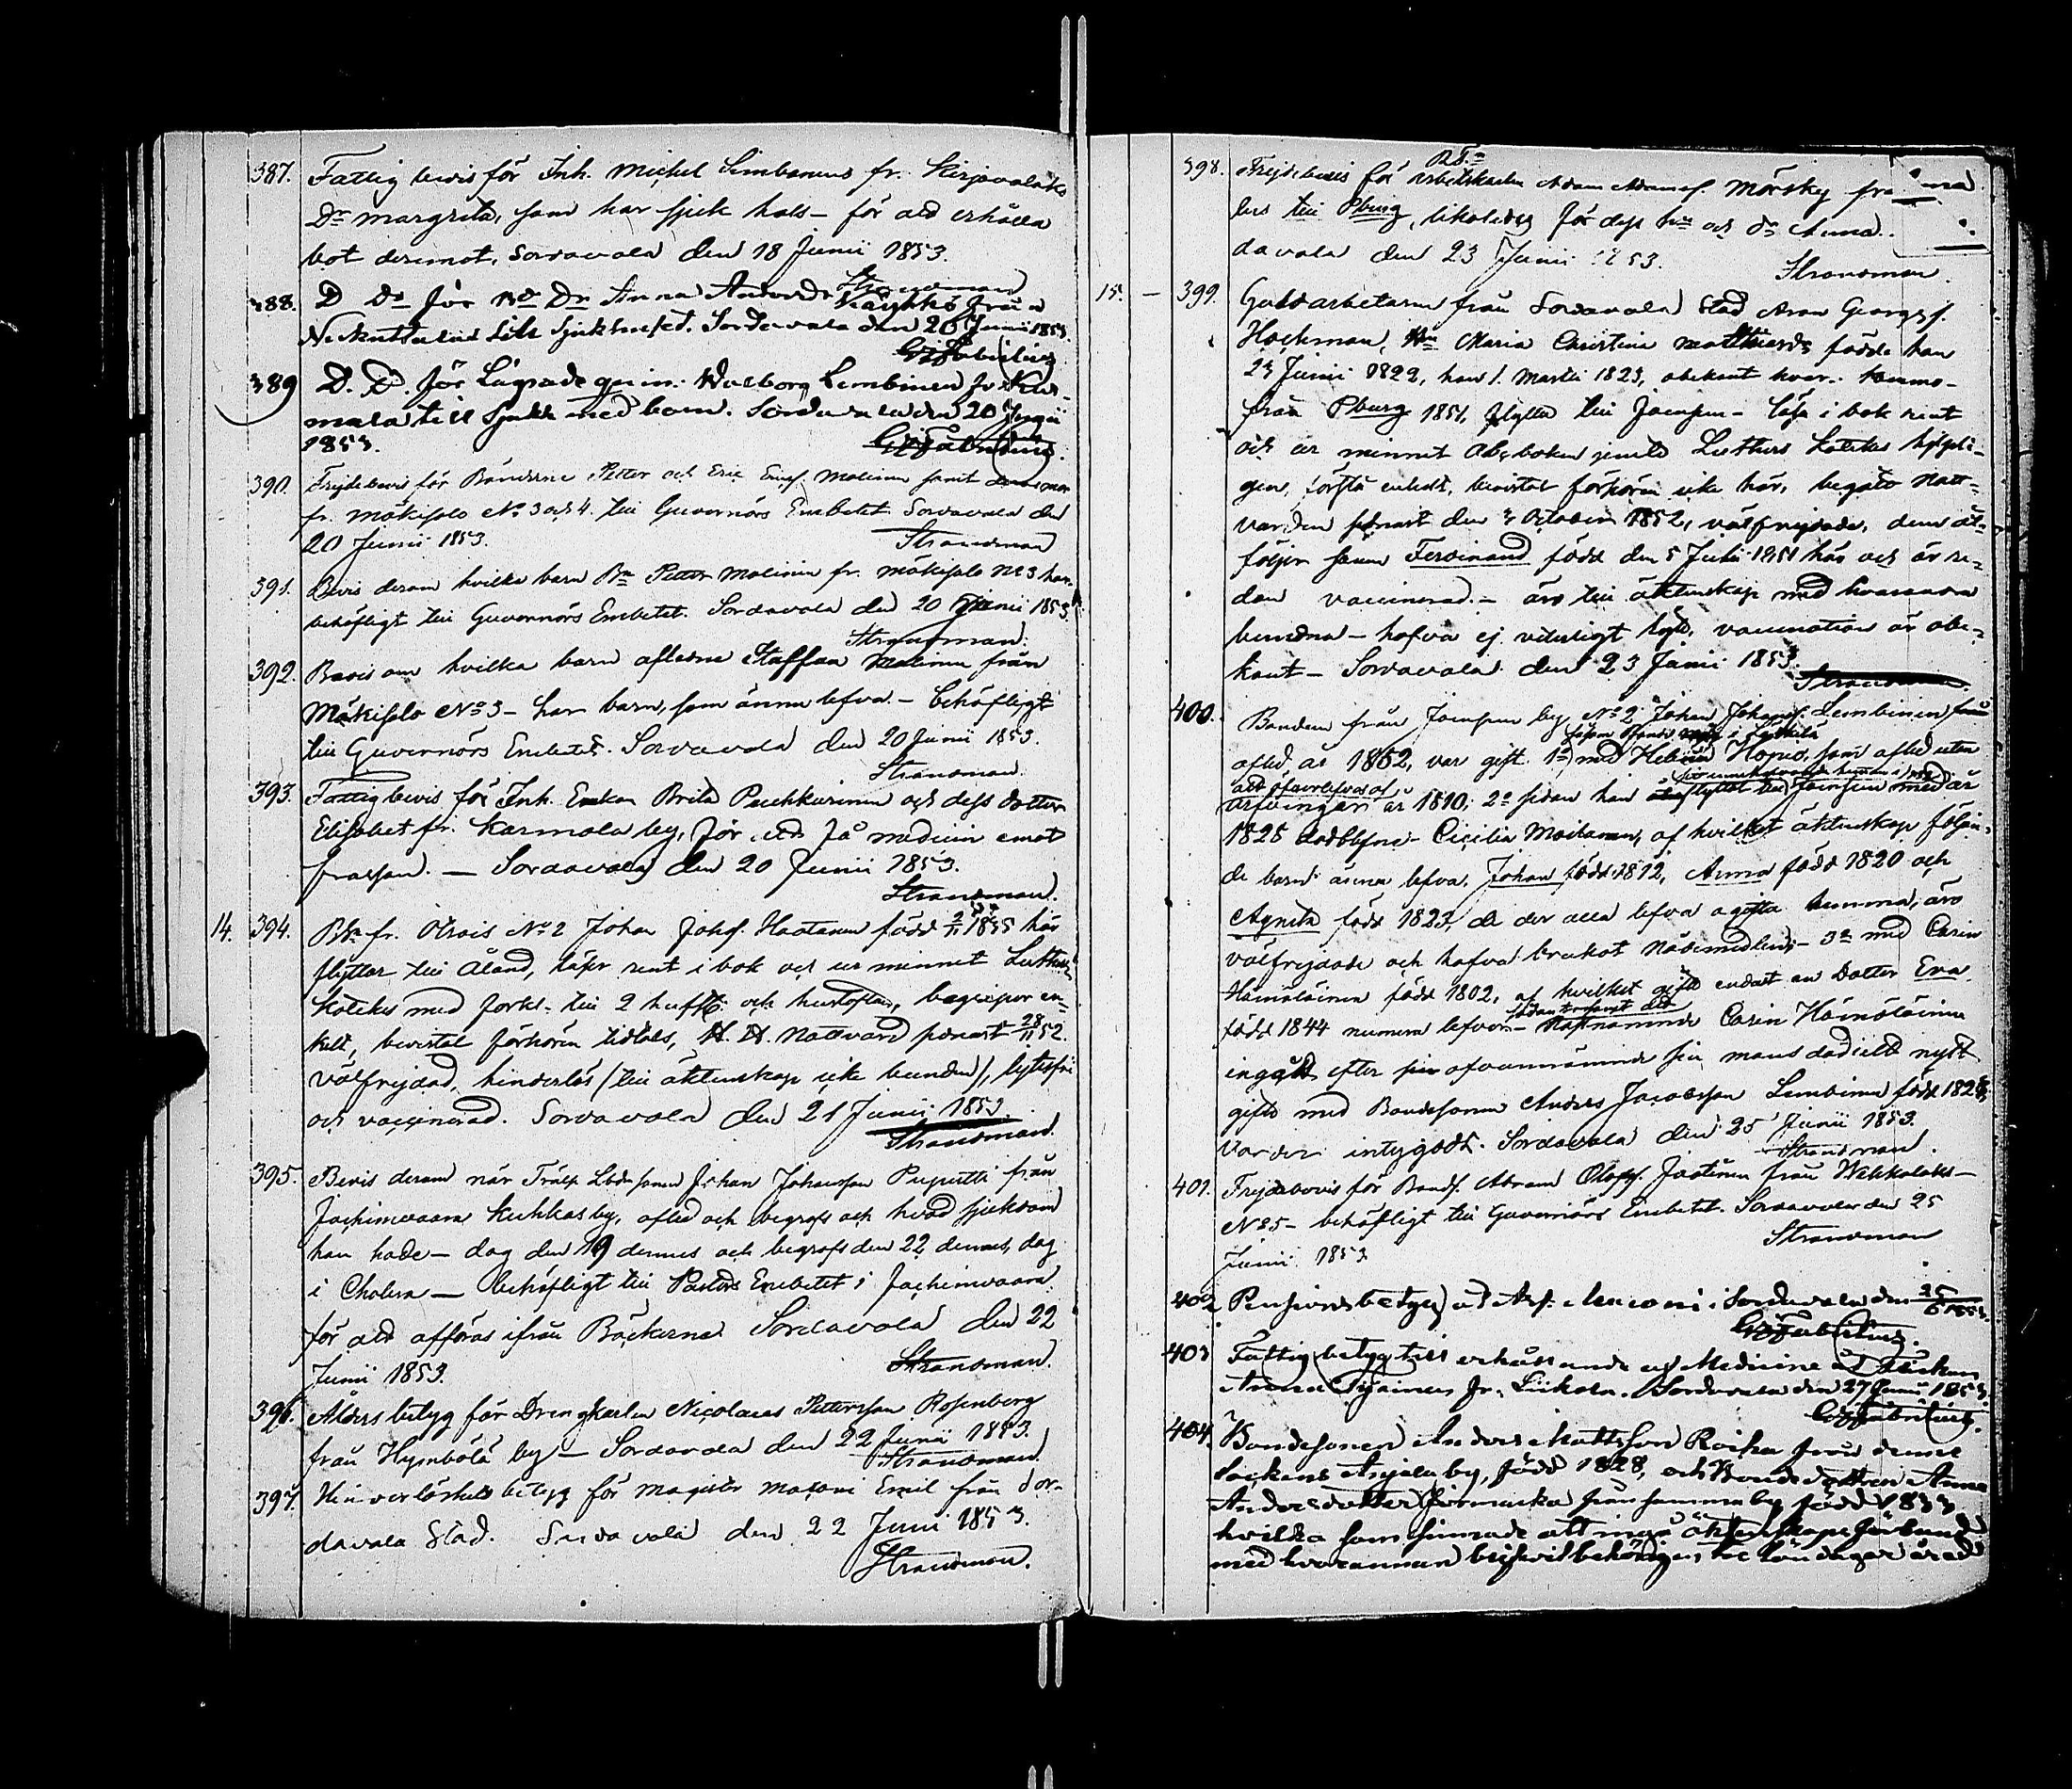 387. Fattig bevis för Inh. Michel Simbanens fr. Kirjavalaks
Dr Margreta, som har sjuk hals – för att erhålla
bot deremot, Sordavala den 18 Junii 1853.
Strandman
388. D do för Bd Dr Anna Andersdr Väykkö från
till Sjukhuset. Sordavala den 20 Junii 1853.
GFabritius
389 D. D. för Lägrade qvin: Walborg Lembinen fr Kar-
mala till Sjukh med barn. Sordavala den 20 Junii
1853. GFabritius.
390. Frejdebevis för Bönderne Petter och Eric Ericss. Malinen samt
fr. Mäkisalo No 3 och 4. till Guvernörs Embetet. Sordavala den
20 Junii 1853. Strandman
391. Bevis derom hvilka barn Bn Petter Malinin fr. Mäkisalo No 3 har.
behöfligt till Guvernörs Embetet. Sordavala den 20 Junii 1853.
Strandman.
392. Bevis om hvilka barn aflidne Staffan Malinen från
Mäkisalo No 3 – har barn, som ännu lefva. – behöfligt
till Guvernörs Embetet. Sordavala den 20 Junii 1853.
Strandman.
393. Fattigbevis för Inh. Enkan Brita Puhkurinen och dess dotter
Elisabet fr. Karmala by, för att få medicin emot
frassan. – Sordavala den 20 Junii 1853.
Strandman.
14. 394. Bdn fr. Otrais No 2 Johan Johss. Haatanen född 2/11 1835 här
flyttar till Åland, läser rent i bok och ur minnet Luthers
Kateches med förkl. till 2 hufst. och hustaflan, begriper en-
kelt, bevistat förhören tidtals, H. H. Nattvard senast 28/11 52.
Välfrejdad, hinderlös (till äktenskap icke bunden), lytesfri
och vaccinerad. Sordavala den 21 Junii 1853.
Strandman.
395. Bevis derom när Träls Lbdssonen Johan Johansson Puputti från
Jachimvaara Kuhkas by, afled och begrofs och hvad sjukdom
han hade – dog den 19 dennes och begrofs den 22 dennes, dog
i Cholera – behöfligt till Pastors Embetet i Jachimvaara
för att afföras ifrån Böckerne. Sordavala den 22
Junii 1853. Strandman.
396. Ålders betyg för Drengkarlen Nicolaus Pettersson Rosenberg
från Hympölä by – Sordavala den 22 Junii 1853.
Strandman.
397. Hinderlöshets betyg för Magister Maconi Emil från Sor-
davala Stad. Sordavala den 22 Junii 1853.
Strandman.
398. Frejdebevis för Arbetskarlen Adam Adamss. Mörsky fr
till Pburg, likaledes för dess hu och dr Anna.
davala den 23 Junii 1853.
Strandman.
15. – 399. Guldarbetaren från Sordavala Stad Aron Georgss.
Hockman, Hu Maria Christina Matthiasdr, födde han
23 Junii 1822, hon 1 Martii 1823, obekant hvar. komne
från Pburg 1851, flytta till Joensuu – läsa i bok rent
och ur minnet Abcboken jemte Luthers Kateches hjelpli-
gen, förstå enkelt, bevistat förhören icke här, begått Natt-
varden senast den 3 October 1852, välfrejdade, dem åt-
följer sonen Ferdinand född den 5 Juli 1851 här och är re-
dan vaccinerad. – äro till äktenskap med hvarannan
bundna – hafva ej veterligt lyte, vaccination är obe-
kant – Sordavala den 23 Junii 1853.
Strandman.
400. Bonden från Joensuu by No 2 Johan Johanss. Lembinen
afled år 1852, var gift 1o) med Helena som afled utan
att efterlefvas af
arfvingar år 1810; 2o sedan han flyttat till Joensuu med år
1828 dödblefne Cicilia Moilanen, af hvilket äktenskap följan-
de barn ännu lefva, Johan född 1812, Anna född 1820 och
Agneta född 1823, de der alla lefva ogifta hemma, äro
välfrejdade och hafva brukat Nådemedlen – 3o med Carin
Hämäläinen född 1802, af hvilket gifte endast en Dotter Eva
född 1844 numera lefver – Carin Hämäläinen
ingått efter sin ofvannämnde sin mans död ett nytt
gifte med Bondesonen Anders Jacobsson Lembinen född 1828,
varder intygadt. Sordavala den 25 Junii 1853.
Strandman.
401. Frejdebevis för Bonds. Abram Olofss. Jaatinen från
No 5 – behöfligt till Guvernörs Embetet. Sordavala den 25
Junii 1853. Strandman
402. Pensionsbetyg Maconi i Sordavala den 25/6 1853.
GFabritius.
403 Fattigbetyg till erhållande af Medicine åt Enkan
Anna fr. Liikola. Sordavala den 27 Junii 1853.
GFabritius.
404. Bondesonen Anders Mattsson Roiha från denne
Sockens Anjala by, född 1828, och Bondedottren Anna
Andersdotter från samma by född 1833
hvilka som sinnade att ingå äktenskapsförbund
med hvarannan blifvit behörigen tre söndagar å rad